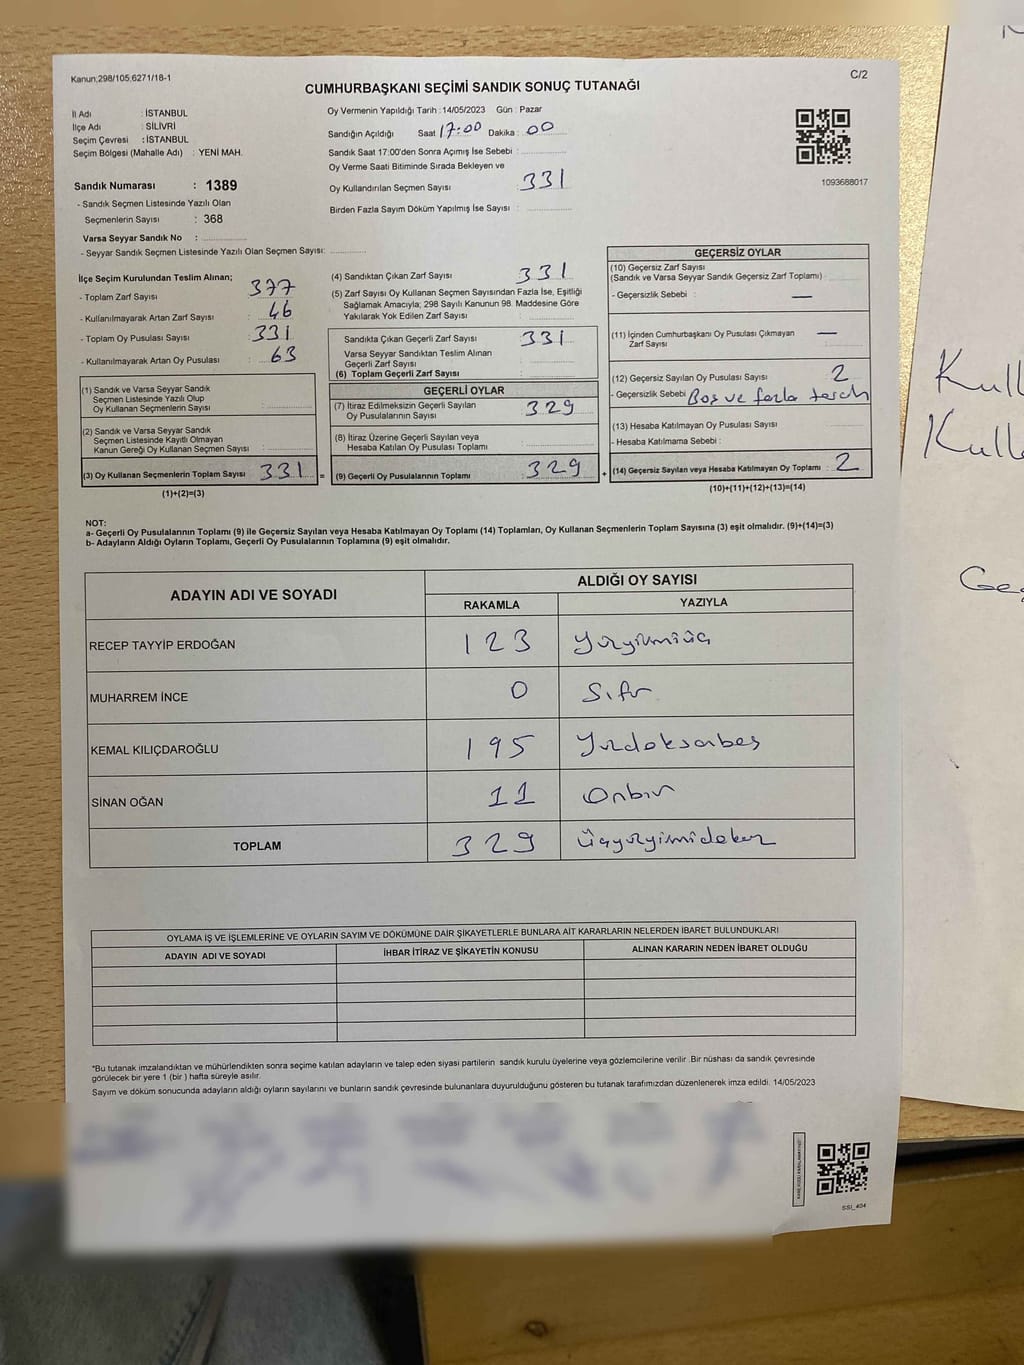 Kanun;298/105;6271/18-1
C/2
CUMHURBAŞKANI SEÇİMİ SANDIK SONUÇ TUTANAĞI
İl Adı : İSTANBUL
İlçe Adı : SİLİVRİ
Seçim Çevresi : İSTANBUL
Seçim Bölgesi (Mahalle Adı) : YENİ MAH.
Sandık Numarası : 1389
- Sandık Seçmen Listesinde Yazılı Olan
Seçmenlerin Sayısı : 368
Varsa Seyyar Sandık No :
- Seyyar Sandık Seçmen Listesinde Yazılı Olan Seçmen Sayısı:
Oy Vermenin Yapıldığı Tarih : 14/05/2023 Gün : Pazar
Sandığın Açıldığı Saat 17:00 Dakika : 00
Sandık Saat 17:00'den Sonra Açımış İse Sebebi :
Oy Verme Saati Bitiminde Sırada Bekleyen ve
Oy Kullandırılan Seçmen Sayısı : 331
Birden Fazla Sayım Döküm Yapılmış İse Sayısı :
1093688017
İlçe Seçim Kurulundan Teslim Alınan;
- Toplam Zarf Sayısı : 377
- Kullanılmayarak Artan Zarf Sayısı : 46
- Toplam Oy Pusulası Sayısı : 331
- Kullanılmayarak Artan Oy Pusulası : 63
(1) Sandık ve Varsa Seyyar Sandık
Seçmen Listesinde Yazılı Olup
Oy Kullanan Seçmenlerin Sayısı :
(2) Sandık ve Varsa Seyyar Sandık
Seçmen Listesinde Kayıtlı Olmayan
Kanun Gereği Oy Kullanan Seçmen Sayısı :
(3) Oy Kullanan Seçmenlerin Toplam Sayısı : 331 =
(1)+(2)=(3)
(4) Sandıktan Çıkan Zarf Sayısı : 331
(5) Zarf Sayısı Oy Kullanan Seçmen Sayısından Fazla İse, Eşitliği
Sağlamak Amacıyla; 298 Sayılı Kanunun 98. Maddesine Göre
Yakılarak Yok Edilen Zarf Sayısı :
Sandıkta Çıkan Geçerli Zarf Sayısı : 331
Varsa Seyyar Sandıktan Teslim Alınan
Geçerli Zarf Sayısı :
(6) Toplam Geçerli Zarf Sayısı :
GEÇERLİ OYLAR
(7) İtiraz Edilmeksizin Geçerli Sayılan
Oy Pusulalarının Sayısı : 329
(8) İtiraz Üzerine Geçerli Sayılan veya
Hesaba Katılan Oy Pusulası Toplamı :
(9) Geçerli Oy Pusulalarının Toplamı : 329 +
GEÇERSİZ OYLAR
(10) Geçersiz Zarf Sayısı
(Sandık ve Varsa Seyyar Sandık Geçersiz Zarf Toplamı) :
- Geçersizlik Sebebi : —
(11) İçinden Cumhurbaşkanı Oy Pusulası Çıkmayan
Zarf Sayısı : —
(12) Geçersiz Sayılan Oy Pusulası Sayısı : 2
- Geçersizlik Sebebi : Boş ve fazla tercih
(13) Hesaba Katılmayan Oy Pusulası Sayısı :
- Hesaba Katılmama Sebebi :
(14) Geçersiz Sayılan veya Hesaba Katılmayan Oy Toplamı : 2
(10)+(11)+(12)+(13)=(14)
NOT:
a- Geçerli Oy Pusulalarının Toplamı (9) ile Geçersiz Sayılan veya Hesaba Katılmayan Oy Toplamı (14) Toplamları, Oy Kullanan Seçmenlerin Toplam Sayısına (3) eşit olmalıdır. (9)+(14)=(3)
b- Adayların Aldığı Oyların Toplamı, Geçerli Oy Pusulalarının Toplamına (9) eşit olmalıdır.
ADAYIN ADI VE SOYADI
ALDIĞI OY SAYISI
RAKAMLA YAZIYLA
RECEP TAYYİP ERDOĞAN 123 Yüzyirmiüç
MUHARREM İNCE 0 Sıfır
KEMAL KILIÇDAROĞLU 195 Yüzdoksanbeş
SİNAN OĞAN 11 Onbir
TOPLAM 329 Üçyüzyirmidokuz
OYLAMA İŞ VE İŞLEMLERİNE VE OYLARIN SAYIM VE DÖKÜMÜNE DAİR ŞİKAYETLERLE BUNLARA AİT KARARLARIN NELERDEN İBARET BULUNDUKLARI
ADAYIN ADI VE SOYADI İHBAR İTİRAZ VE ŞİKAYETİN KONUSU ALINAN KARARIN NEDEN İBARET OLDUĞU
*Bu tutanak imzalandıktan ve mühürlendikten sonra seçime katılan adayların ve talep eden siyasi partilerin sandık kurulu üyelerine veya gözlemcilerine verilir .Bir nüshası da sandık çevresinde
görülecek bir yere 1 (bir ) hafta süreyle asılır.
Sayım ve döküm sonucunda adayların aldığı oyların sayılarını ve bunların sandık çevresinde bulunanlara duyurulduğunu gösteren bu tutanak tarafımızdan düzenlenerek imza edildi. 14/05/2023
SSİ_404
Kull
Kulla
Geç